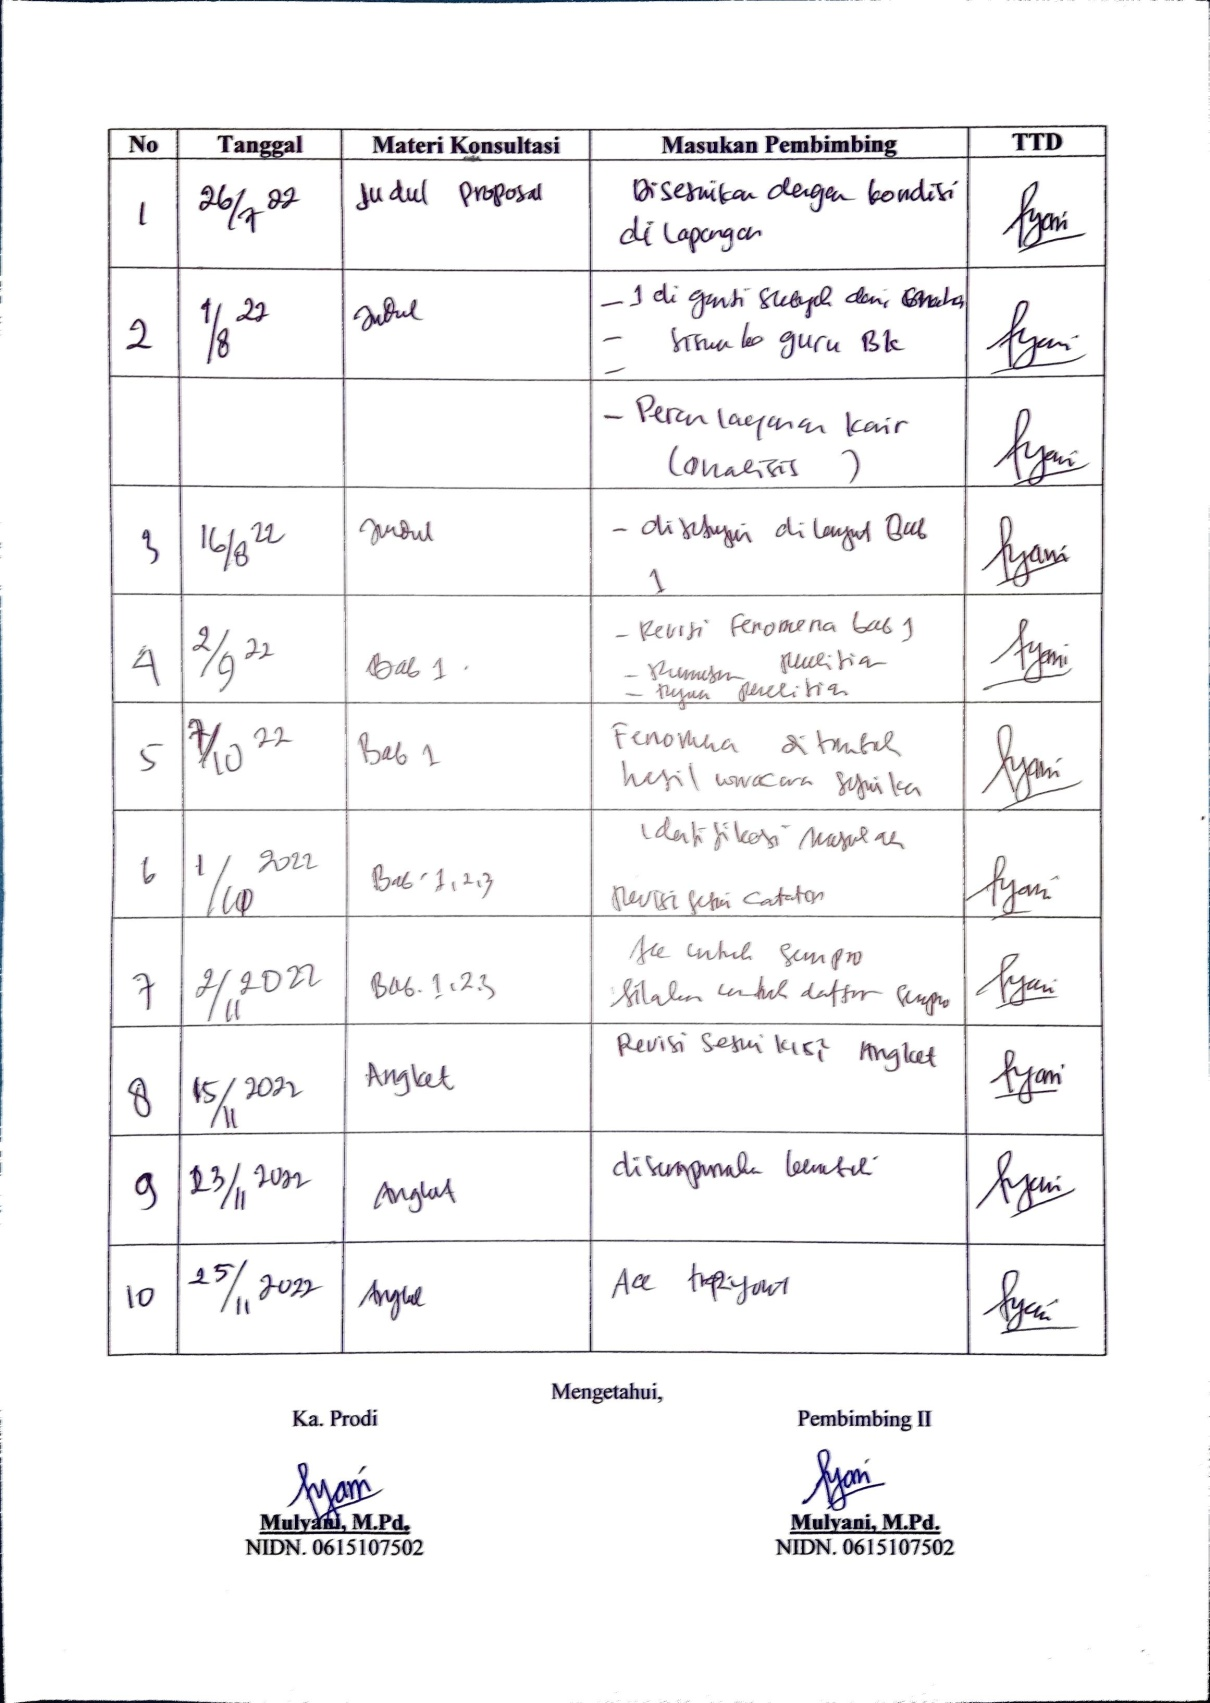 No Tanggal Materi Konsultasi Masukan Pembimbing TTD
1 26/7 22 Judul Proposal Disesuikan dengan kondisi
di Lapangan
2 1/8 22 Judul - 1 di ganti
- guru BK
-
- Peran layanan karir
(analisis )
3 16/8 22 Judul - disetujui di lanjut Bab
1
4 2/9 22 Bab 1 - Revisi Fenomena bab 1
- Rumusan penelitian
- tujuan penelitian
5 7/10 22 Bab 1 Fenomena ditambah
hasil wawacara
6 1/ 2022 Bab 1,2,3 Identifikasi Masalah
Revisi sesui catatan
7 2/11 2022 Bab. 1,2,3 Acc untuk sempro
Silahkan untuk daftar sempro
8 15/11 2022 Angket Revisi sesui kisi Angket
9 23/11 2022 Angket
10 25/11 2022 Angket Acc
Mengetahui,
Ka. Prodi Pembimbing II
Mulyani, M.Pd. Mulyani, M.Pd.
NIDN. 0615107502 NIDN. 0615107502